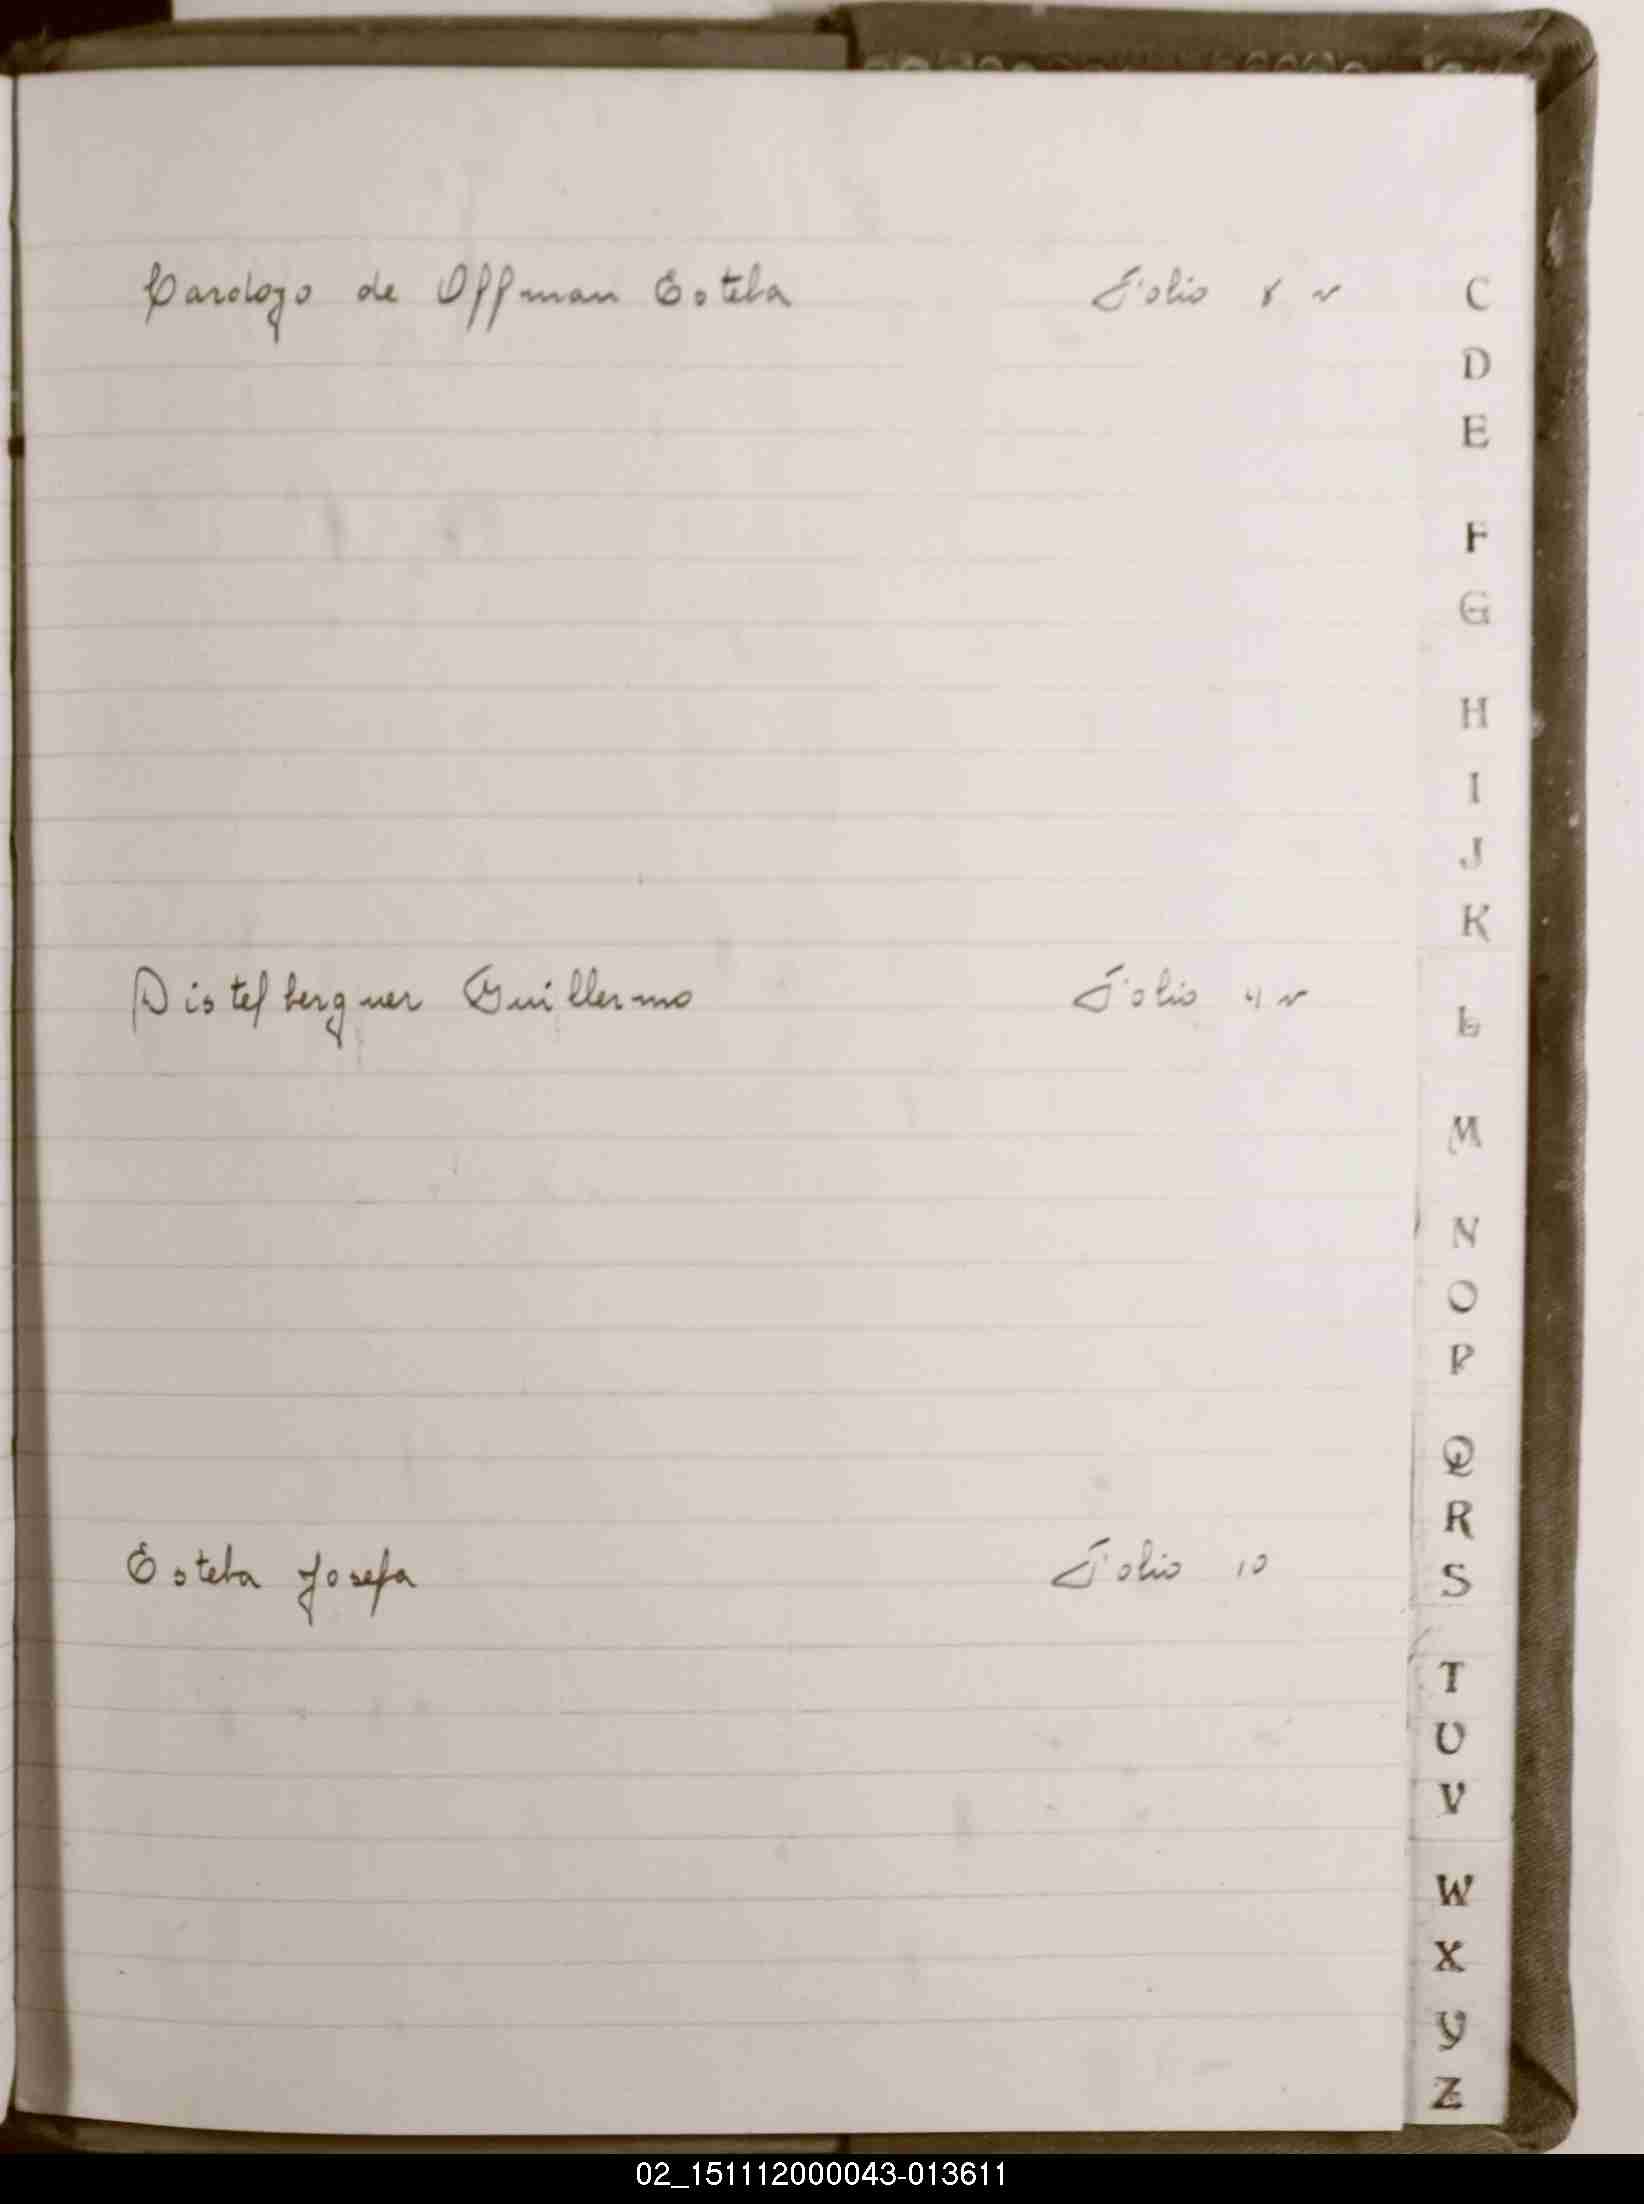 Cardozo de Offman Estela Folio 8 v
C
D
E
F
G
H
I
J
K
Distelberguer Guillermo Folio 4 v
L
M
N
O
P
Q
R
Estela Josefa Folio 10
S
T
U
V
W
X
Y
Z
02_151112000043-013611